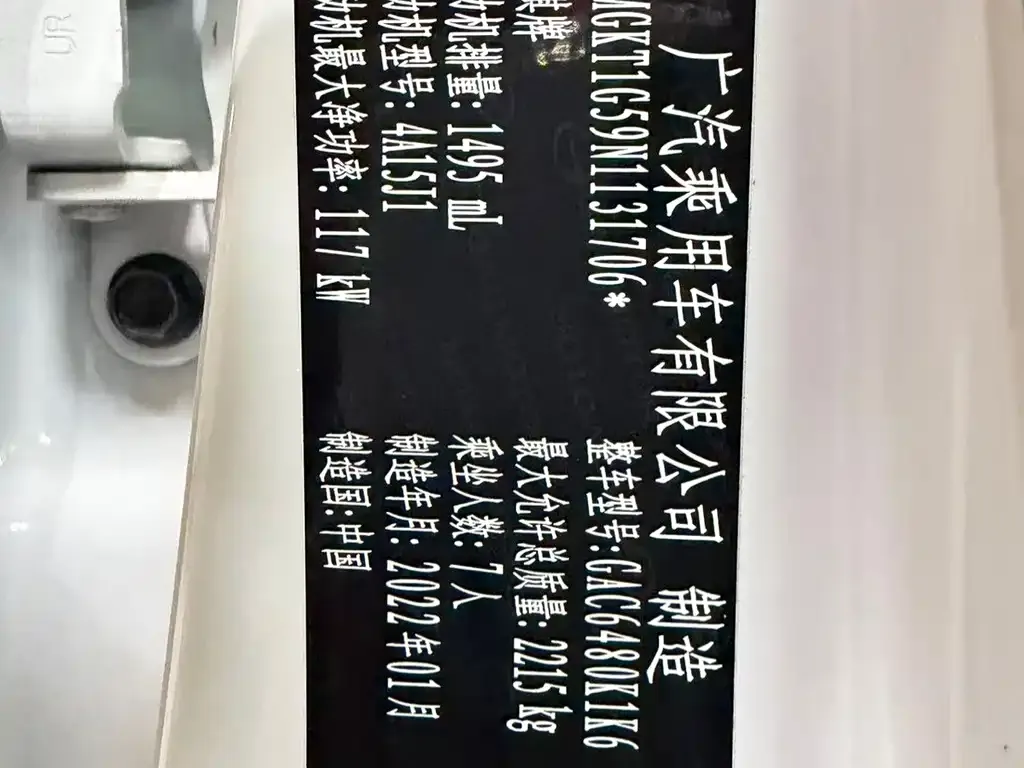 广汽乘用车有限公司 制造
MGKT1G59N1131706* 整车型号:GAC6480K1K6
祺牌 最大允许总质量: 2215 kg
动机排量: 1495 mL 乘坐人数: 7人
动机型号: 4A15J1 制造年月: 2022年01月
动机最大净功率: 117 kW 制造国: 中国